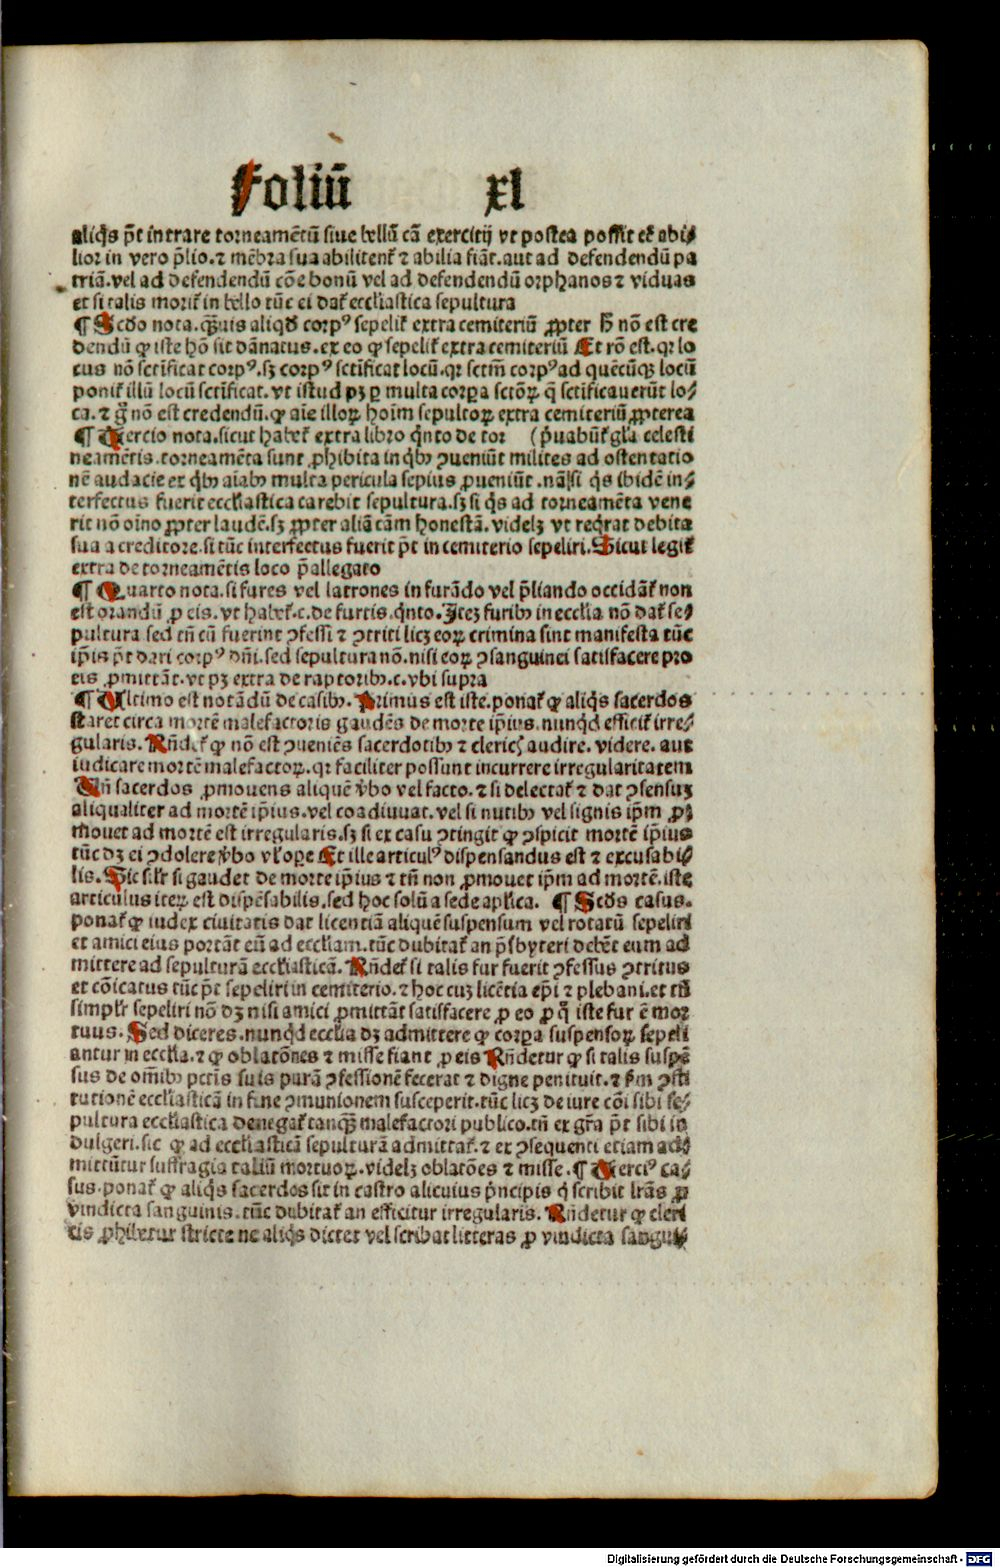 Foliū xl
aliq̄s p̄t intrare torneamētū siue bellū cā exercitij vt postea possit eē abi⸗
lior in vero p̄lio.⁊ mēbra sua abilitenť ⁊ abilia fiāt.aut ad defendendū pa
triā.vel ad defendendū cōe bonū vel ad defendendū orphanos ⁊ viduas
et si talis moriť in bello tūc ei dať eccl̄iastica sepultura
¶ Scd̄o nota.q̄uis aliqd̄ corpꝰ sepeliť extra cemiteriū ꝓpter h̄ nō est cre
dendū ꝙ iste hō sit dānatus.ex eo ꝙ sepeliť extra cemiteriū Et rō est.qꝛ lo
cus nō sctificat corpꝰ.sꝫ corpꝰ sctificat locū.qꝛ sctm̄ corpꝰ ad quēcūqꝫ locū
poniť illū locū sctificat.vt istud pꝫ ꝑ multa corꝑa sctōꝝ q̄ sctificauerūt lo⸗
ca.⁊ g̊ nō est credendū.ꝙ aīe illoꝝ hoīm sepultoꝝ extra cemiteriū ꝓpterea
¶ Tercio nota.sicut habeť extra libro qͥnto de tor (p̄uabūť gl̄a celesti
neamētis.torneamēta sunt ꝓhibita in qͥbꝰ ꝯueniūt milites ad ostentatio
nē audacie ex qͥbꝰ aīabꝰ multa pericula sepius ꝓueniūt.nā si q̄s ibidē in⸗
terfectus fuerit eccl̄iastica carebit sepultura.sꝫ si q̄s ad torneamēta vene
rit nō oīno ꝓpter laudē.sꝫ ꝓpter aliā cām honestā.videlꝫ vt reqͥrat debita
sua a creditore.si tūc interfectus fuerit p̄t in cemiterio sepeliri.Sicut legiť
extra de torneamētis loco p̄allegato
¶ Quarto nota.si fures vel latrones in furādo vel p̄liando occidāť non
est orandū ꝓ eis.vt habeť.c.de furtis.qͥnto.Iteꝫ furibꝰ in eccl̄ia nō dať se⸗
pultura sed tn̄ cū fuerint ꝯfessi ⁊ ꝯtriti licꝫ eoꝝ crimina sint manifesta tūc
ip̄is p̄t dari corpꝰ dn̄i.sed sepultura nō.nisi eoꝝ ꝯsanguinei satisfacere pro
eis ꝓmittāt.vt pꝫ extra de raptoribꝰ.c.vbi supra
¶ Ultimo est notādū de casibꝰ.Primus est iste.ponať ꝙ aliq̄s sacerdos
staret circa mortē malefactoris gaudēs de morte ip̄ius.nunqͥd efficiť irre⸗
gularis.Rn̄deť ꝙ nō est ꝯueniēs sacerdotibꝰ ⁊ clericꝭ audire.videre.aut
iudicare mortē malefactoꝝ.qꝛ faciliter possunt incurrere irregularitatem
Un̄ sacerdos ꝓmouens aliquē v̄bo vel facto.⁊ si delectať ⁊ dat ꝯsensuꝫ
aliqualiter ad mortē ip̄ius.vel coadiuuat.vel si nutibꝰ vel signis ip̄m ꝓ⸗
mouet ad mortē est irregularis.sꝫ si ex casu ꝯtingit ꝙ ꝯspicit mortē ip̄ius
tūc dꝫ ei ꝯdolere v̄bo vl̄ oꝑe Et ille articulꝰ dispensandus est ⁊ excusabi⸗
lis.Sic sil̄r si gaudet de morte ip̄ius ⁊ tn̄ non ꝓmouet ip̄m ad mortē.iste
articulus iteꝝ est dispēsabilis.sed hoc solū a sede ap̄lica. ¶ Scd̄s casus.
ponať ꝙ iudex ciuitatis dat licentiā aliquē suspensum vel rotatū sepeliri
et amici eius portāt eū ad eccl̄iam.tūc dubitať an p̄sbyteri debēt eum ad
mittere ad sepulturā eccl̄iasticā.Rn̄deť si talis fur fuerit ꝯfessus ꝯtritus
et cōicatus tūc p̄t sepeliri in cemiterio.⁊ hoc cuꝫ licētia ep̄i ⁊ plebani.et tn̄
simpl̄r sepeliri nō dꝫ nisi amici ꝓmittāt satisfacere ꝓ eo ꝓ q̄ iste fur ē mor
tuus.Sed diceres.nunqͥd eccl̄ia dꝫ admittere ꝙ corꝑa suspensoꝝ sepeli
antur in eccl̄ia.⁊ ꝙ oblatōnes ⁊ misse fiant ꝓ eis Rn̄detur ꝙ si talis suspē
sus de om̄ibꝰ pctīs suis purā ꝯfessionē fecerat ⁊ digne penituit.⁊ ẜm ꝯsti
tutionē eccl̄iasticā in fine ꝯmunionem susceperit.tūc licꝫ de iure cōi sibi se⸗
pultura eccl̄iastica denegať tanqͣꝫ malefactori publico.tn̄ ex gr̄a p̄t sibi in
dulgeri.sic ꝙ ad eccl̄iasticā sepulturā admittať.⁊ ex ꝯsequenti etiam ad⸗
mittūtur suffragia taliū mortuoꝝ.videlꝫ oblatōes ⁊ misse.¶ Terciꝰ ca⸗
sus.ponať ꝙ aliq̄s sacerdos sit in castro alicuius p̄ncipis qͥ scribit lr̄as ꝓ
vindicta sanguinis.tūc dubitať an efficitur irregularis.Rn̄detur ꝙ cleri
cis ꝓhibetur stricte ne aliq̄s dictet vel scribat litteras ꝓ vindicta sangui⸗
Digitalisierung gefördert durch die Deutsche Forschungsgemeinschaft - DFG